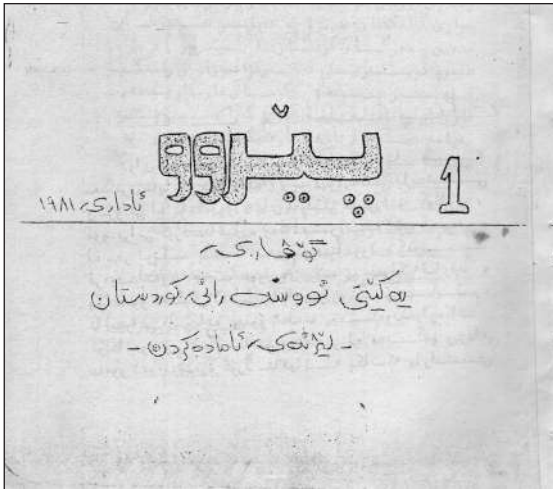 پێروو
1
ئاداری ١٩٨١
گۆڤاری
یەکێتی نووسەرانی کوردستان
- لیژنەی ئامادەکردن -